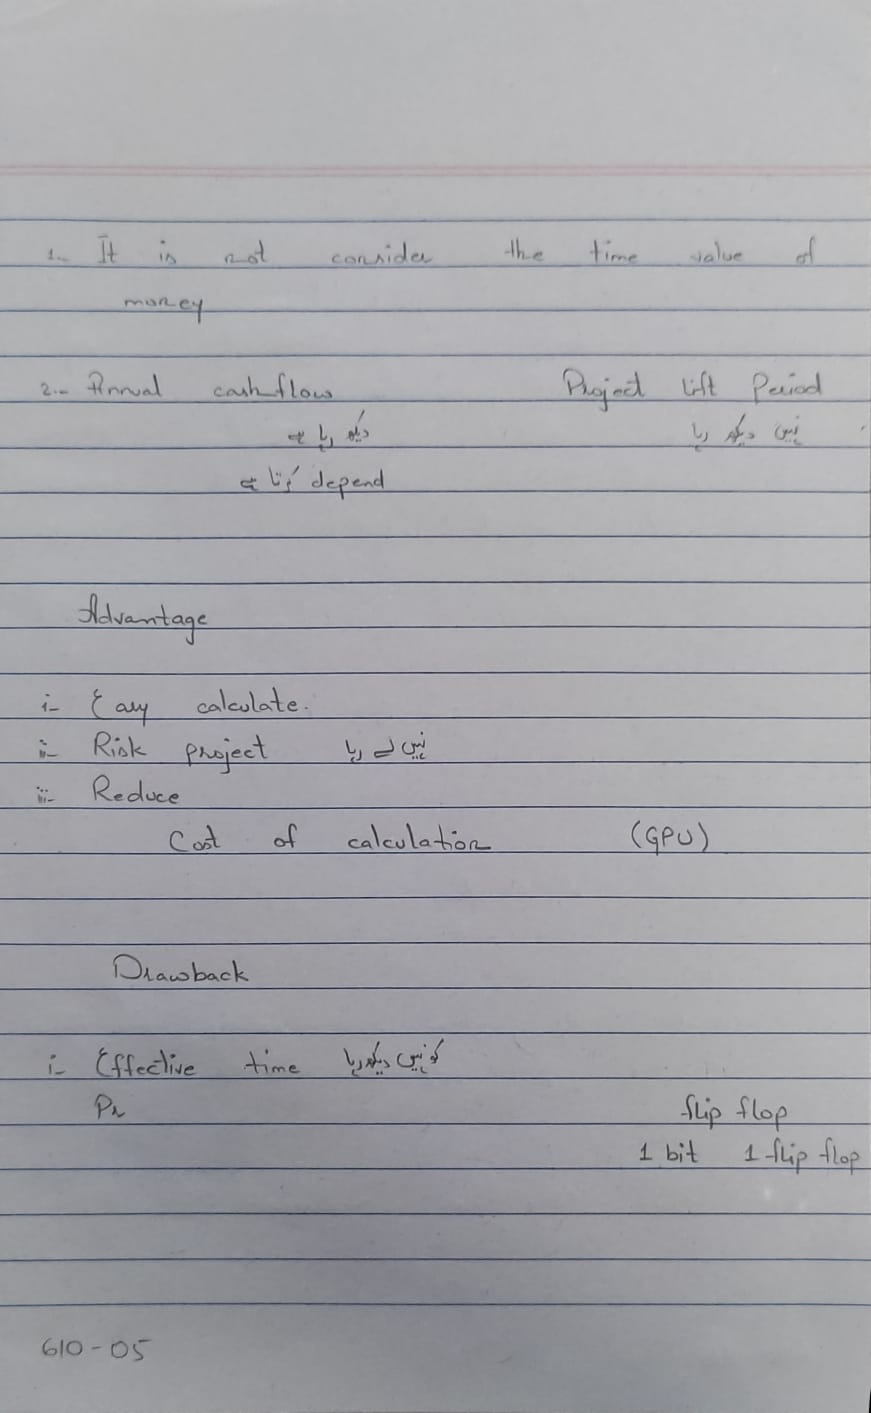 1.- It is not consider the time value of
money
2.- Annual cashflow Project lift Period
دیکھ رہا ہے نہیں دیکھ رہا
depend کرتا ہے
Advantage
i- Easy calculate.
ii- Risk project نہیں لے رہا
iii- Reduce
Cost of calculation (GPU)
Drawback
i- Effective time کو نہیں دیکھ رہا
Pr
flip flop
1 bit 1 flip flop
610-05